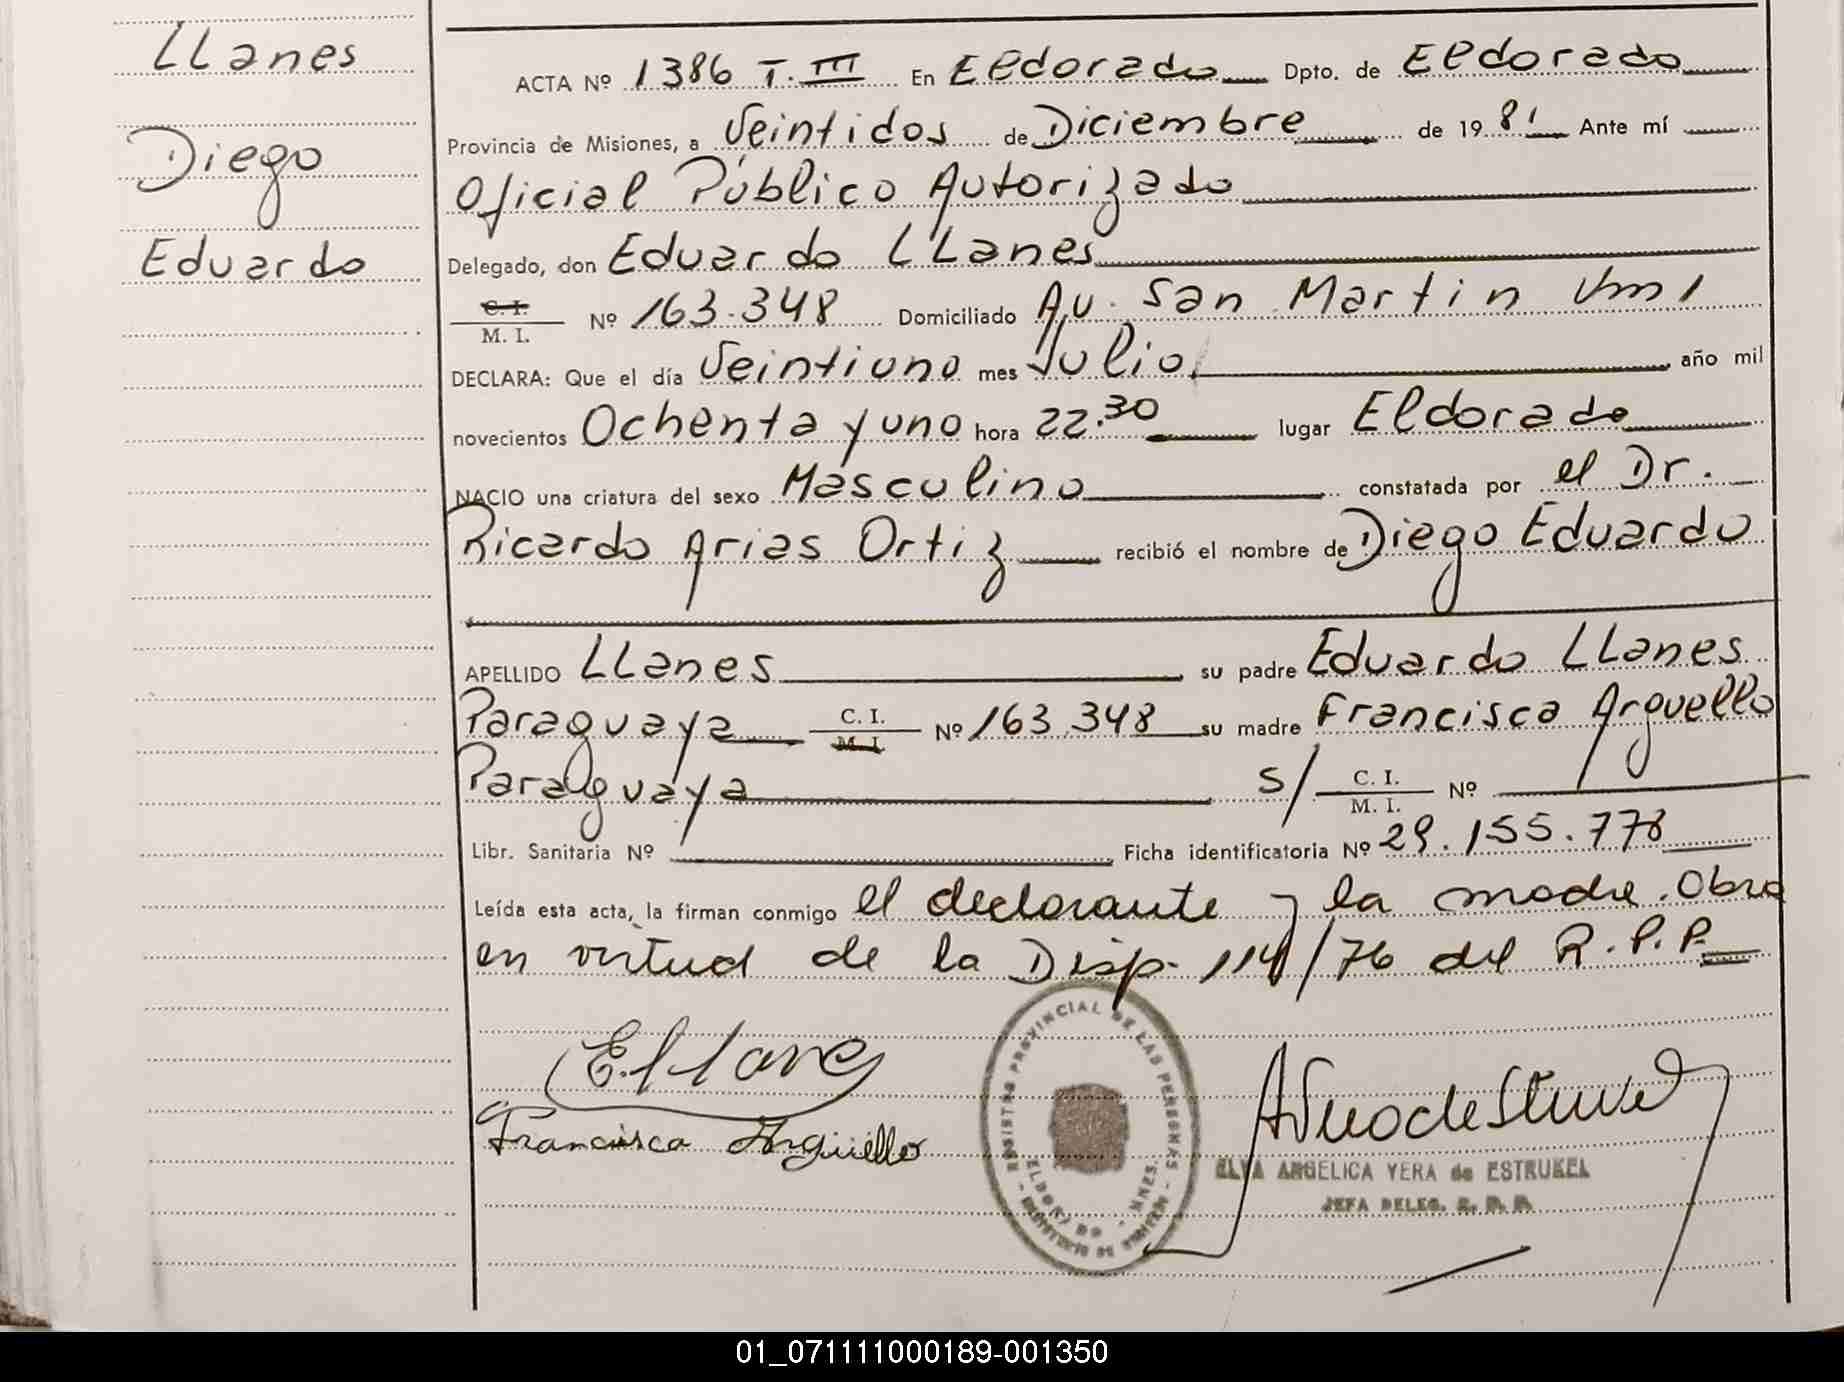 LLanes
Diego
Eduardo
ACTA Nº 1386 T. III En Eldorado Dpto. de Eldorado
Provincia de Misiones, a Veintidos de Diciembre de 1981 Ante mí
Oficial Público Autorizado
Delegado, don Eduardo LLanes
C. I.
M. I. Nº 163.348 Domiciliado Av. San Martin Km 1
DECLARA: Que el día Veintiuno mes Julio, año mil
novecientos Ochenta y uno hora 22.30 lugar Eldorado
NACIO una criatura del sexo Masculino constatada por el Dr.
Ricardo Arias Ortiz recibió el nombre de Diego Eduardo
APELLIDO LLanes su padre Eduardo LLanes
Paraguaya C. I. M. I. Nº 163.348 su madre Francisca Arguello
Paraguaya S/ C. I. M. I. Nº
Libr. Sanitaria Nº Ficha identificatoria Nº 29.155.778
Leída esta acta, la firman conmigo el declarante y la madre. Obra
en virtud de la Disp. 114/76 del R.P.P.
E. Llanes
Francisca Argüello
REGISTRO PROVINCIAL DE LAS PERSONAS
ELDORADO - MNES.
ELVA ANGELICA VERA de ESTRUKEL
JEFA DELEG. R. P. P.
01_071111000189-001350